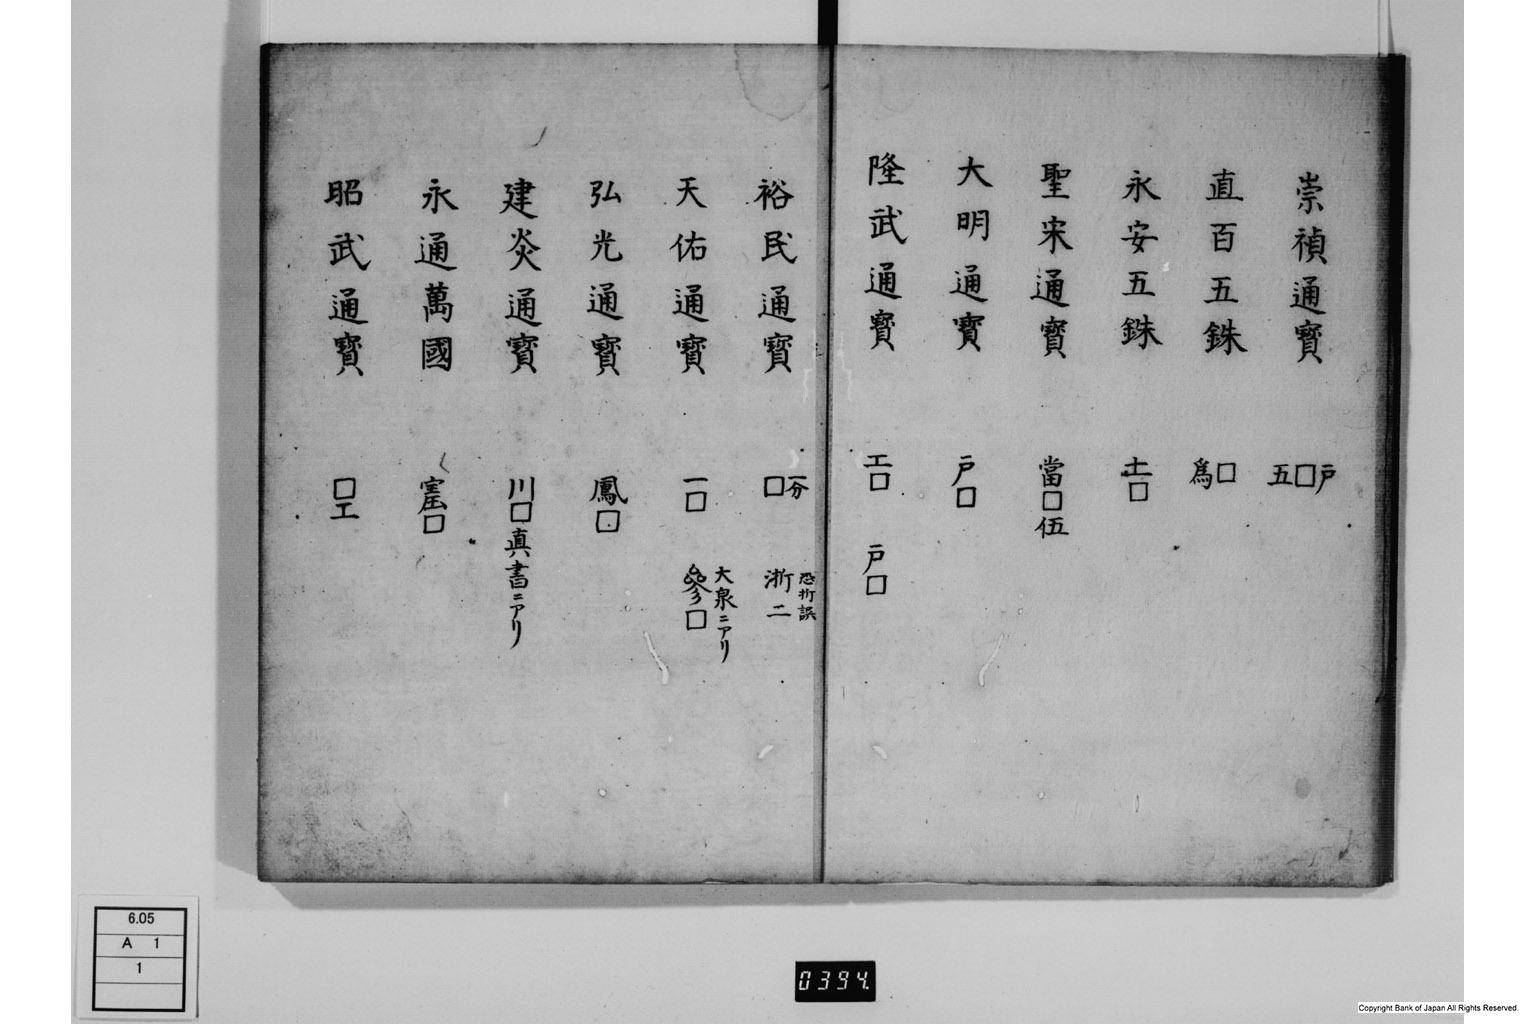 崇禎通寳
戸
□
五
直百五銖
□
爲
永安五銖
十一
□
聖宋通寳
當□伍
大明通寳
戸□
隆武通寳
工□ 戸□
裕民通寳
一分
□
浙二
恐折誤
天佑通寳
一□
大泉ニアリ
參□
弘光通寳
鳳□
建炎通寳
川□真書ニアリ
永通萬國
□
昭武通寳
□工
6.05
A 1
1
0394.
Copyright Bank of Japan All Rights Reserved.